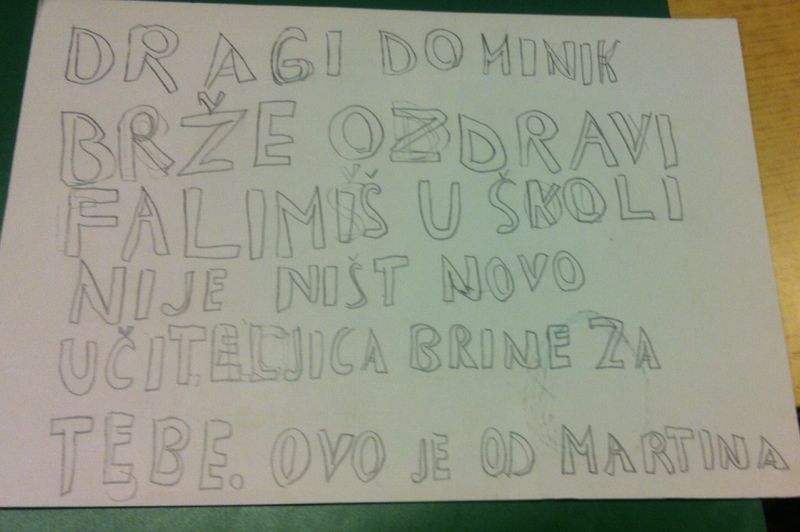 DRAGI DOMINIK
BRŽE OZDRAVI
FALIMIŠ U ŠKOLI
NIJE NIŠT NOVO
UČITELJICA BRINE ZA
TEBE. OVO JE OD MARTINA